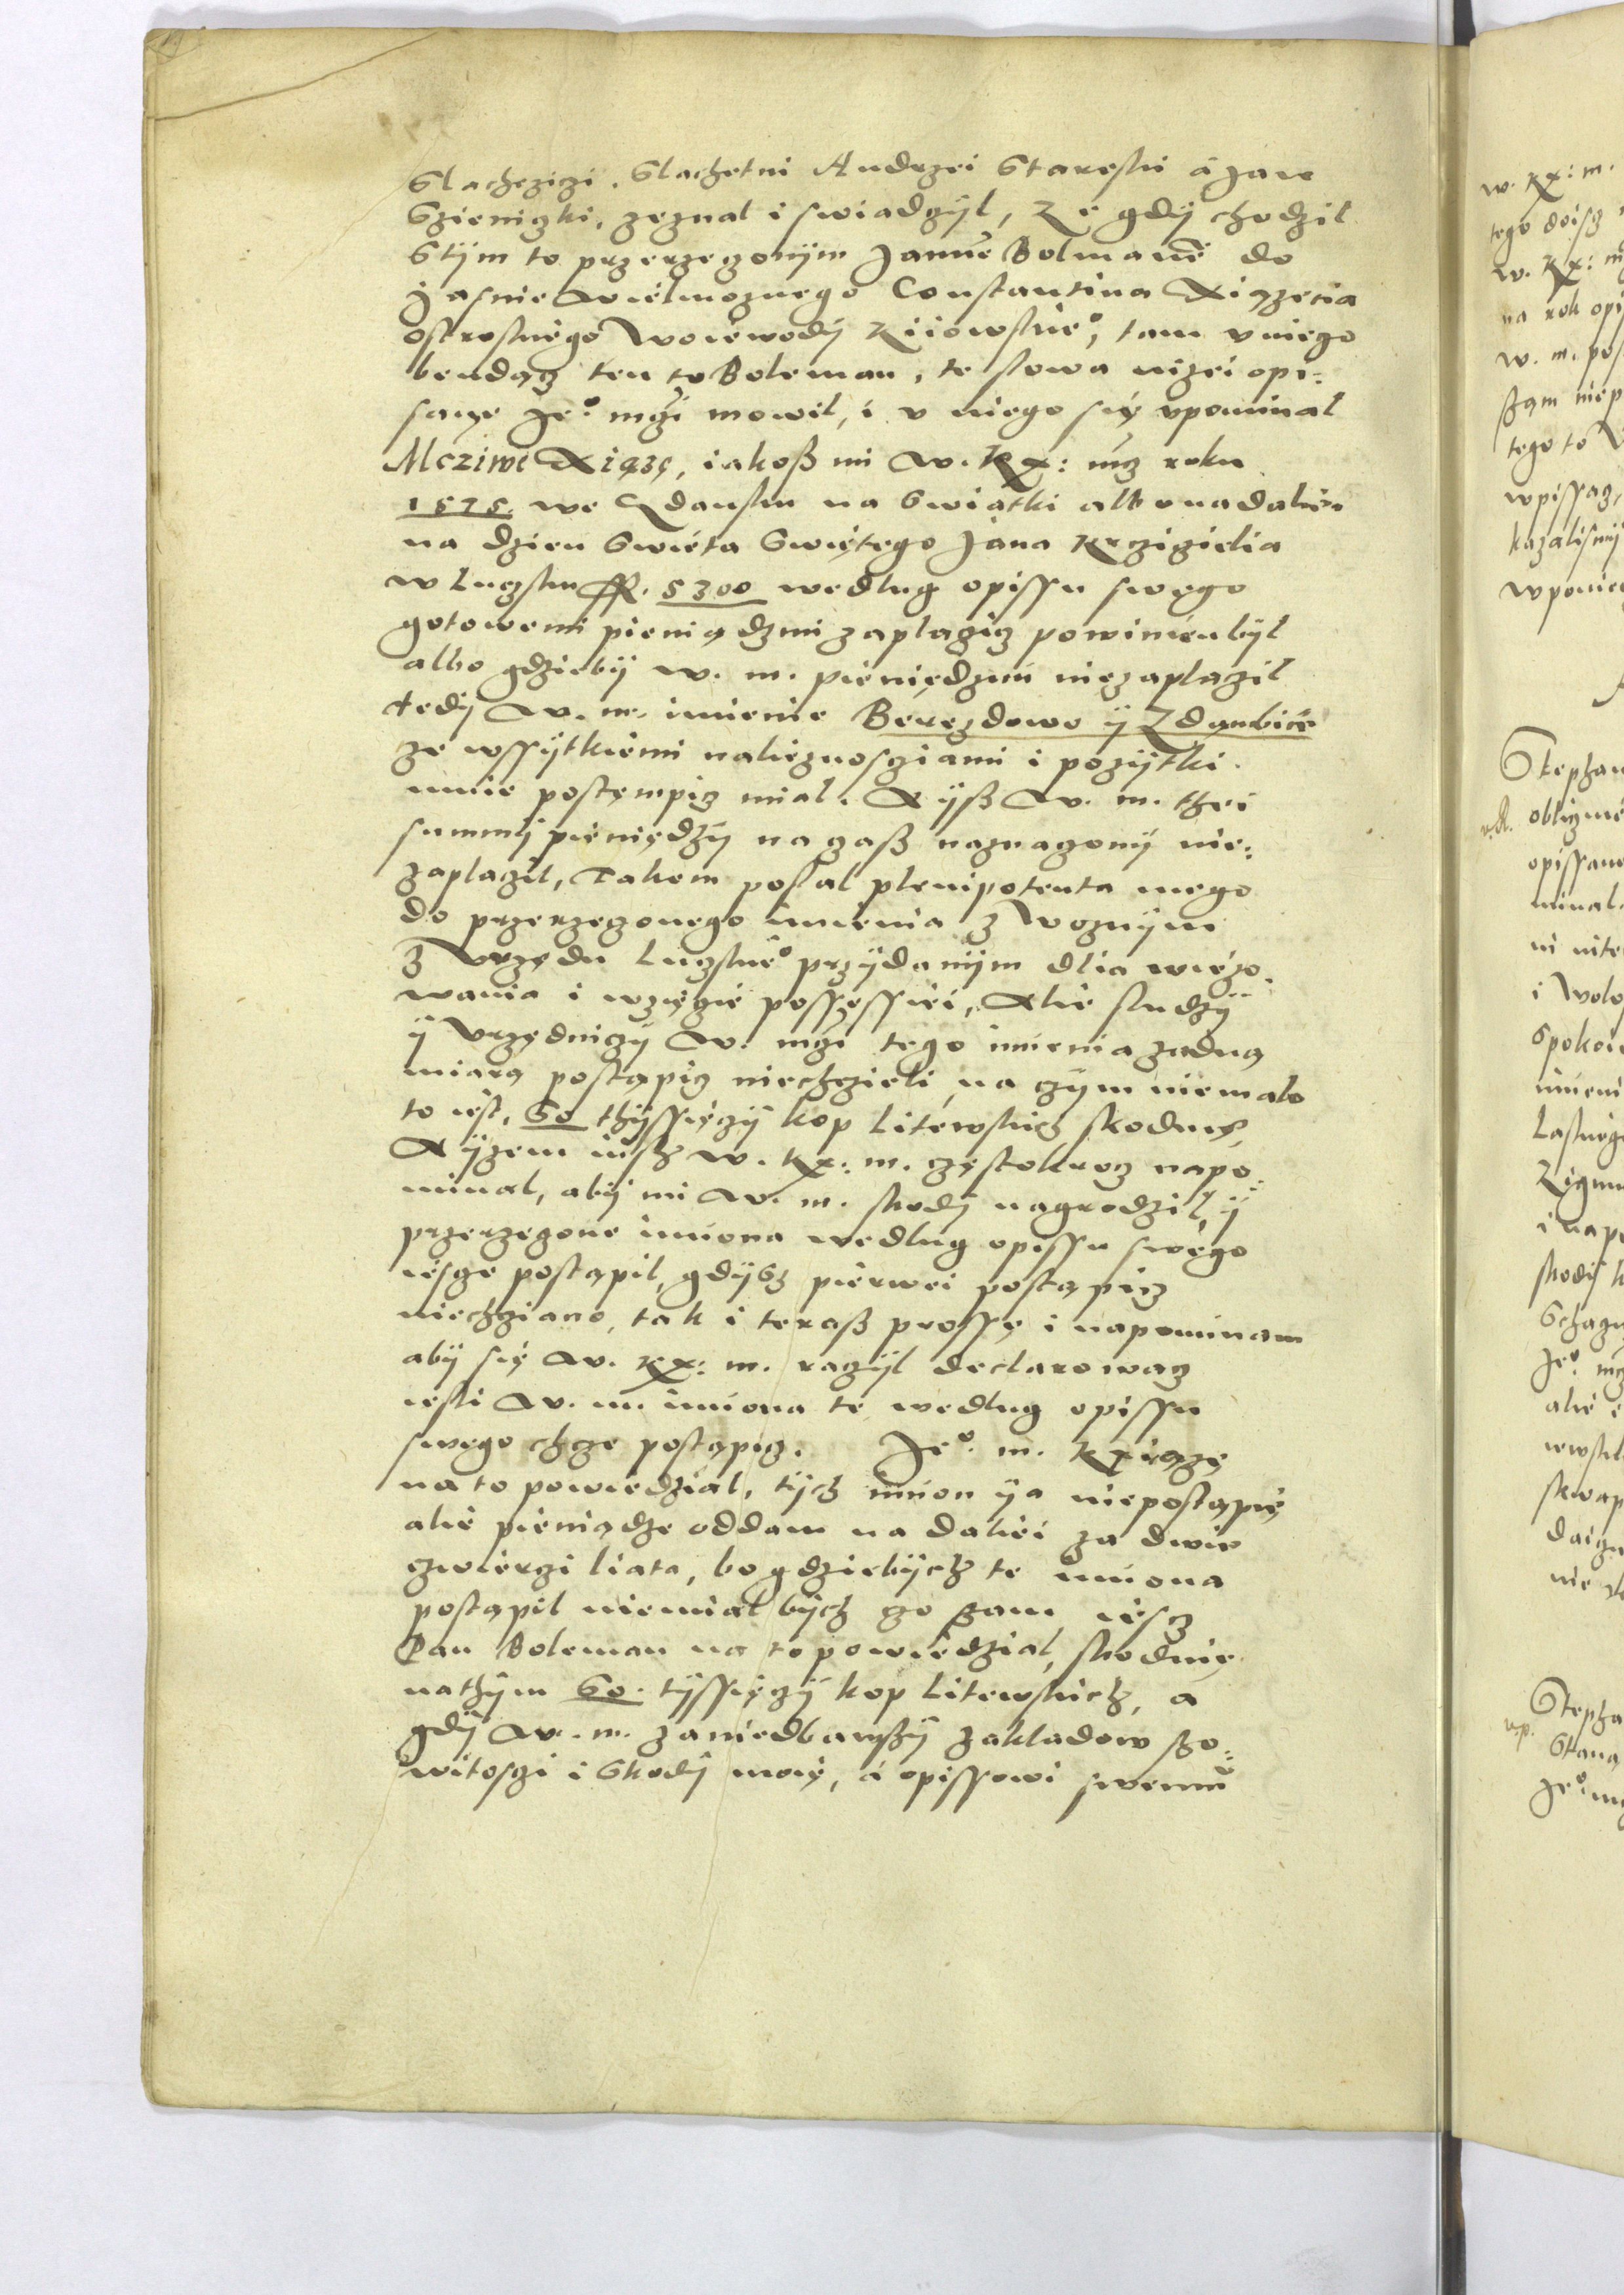 Slachczizi. Slachetni Andrzei Stareski á Jan
Szieniczki, zeznal i swiadczÿl, Ze gdÿ chodzil
Stÿm to przerzeczonÿm Janẽ Bolmanẽ do
Jasnie wielmoznego Constantina Xiązecia
ostroskiego Woiewodÿ Kiiowskie°, tam v niego
bendącz ten to Boleman, te slowa nizei opi:
sane Je°. mczi mowil, i v niego się vpominal
Mcziwe Xiąze, iakoß mi W. Kx: mcz roku
1575. we Gdansku na Swiątki albo nadaliei
na dzien Swięta Swiętego Jana Krzcziciela
w Luczku fl. 5300 wedlug opissu swego
gotowemi pieniądzmi zaplaczicz powinien bÿl
albo gdziebÿ w. m. pieniędzmi niezaplaczil
tedÿ W. m. imienie Berezdowo ÿ Zdanbice
ze wssÿtkiemi nalieznoscziami i pozÿtki.
mnie postempicz mial. A ÿß W. m. thei
summÿ pieniędzÿ na czaß naznaczonÿ nie:
zaplaczil, Takem poslal plenipotenta mego
do przerzeczonego imienia z Woznÿm
z Vrzędu Luczkie° przÿdanÿm dlia wiezo.
wania i wzięczie possessiei, Alie sludzÿ
ÿ Vrzędniczÿ W. mczi tego imienia zadną
miarą postąpicz niechczieli, na czÿm niemalo
to iest, 60 thÿssięczÿ kop Litewskich skoduię,
A ÿzem iusz w. Kx: m. częstokrocz napo:
minal, abÿ mi W. m. skodÿ nagrodzil, ÿ
przerzeczone imiona wedlug opissu swego
iescze postąpil, gdÿsz pierwei postąpicz
niechcziano, tak i teraß prosse i napominam
abÿ się W. Kx: m. raczÿl declarowacz
iesli W. m. imiona te wedlug opissu
swego chcze postąpicz. Je°. m. Kxiąze
na to powiedzial, tÿch imion ÿa niepostąpię
alie pieniądze oddam na daliei za dwie
czwierzi liata, bo gdziebÿch te imiona
postąpil niemial bÿch czo sam iescz
Pan Boleman na to powiedzial, skoduię
nathÿm 60. tÿssięczÿ kop Litewskich, á
gdÿ W. m. zaniedbawszÿ zakladow szo:
witosczi i Skodÿ moie, á opissowi swemu